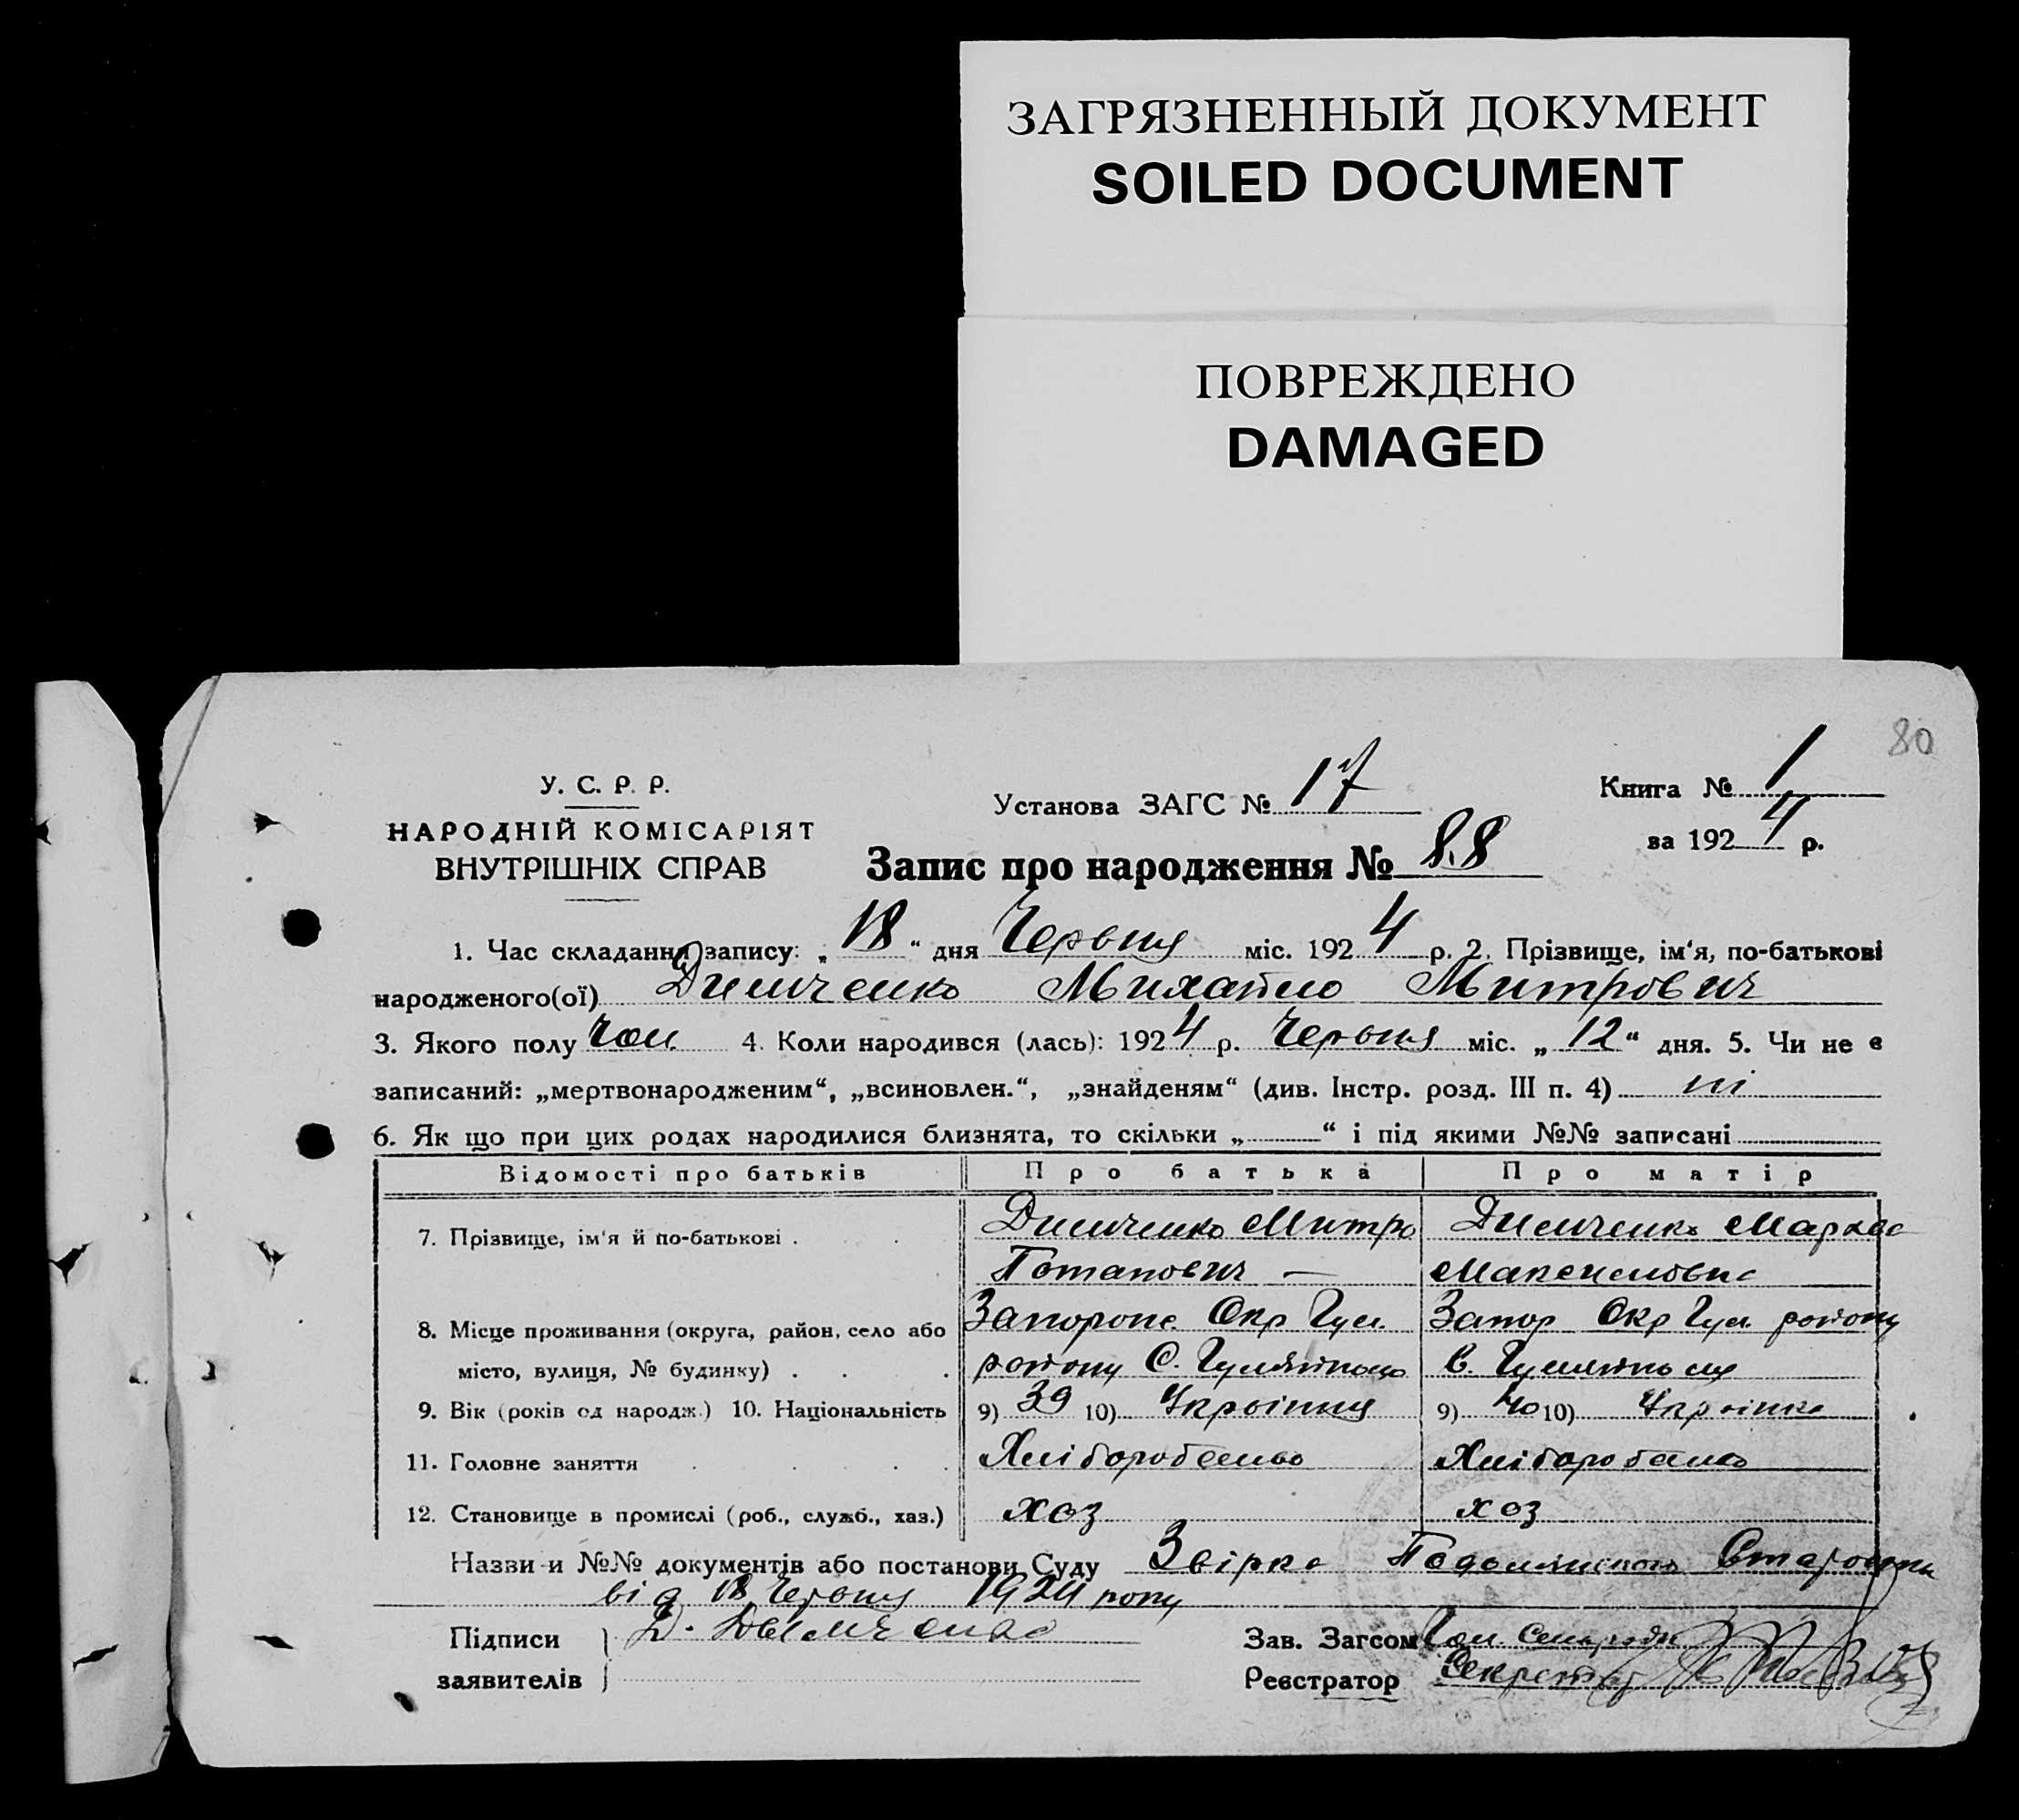 ЗАГРЯЗНЕННЫЙ ДОКУМЕНТ
SOILED DOCUMENT
ПОВРЕЖДЕНО
DAMAGED
80
У. С. Р. Р.
НАРОДНІЙ КОМІСАРІЯТ
ВНУТРІШНІХ СПРАВ
Установа ЗАГС № 17
Книга № 1
за 1924 р.
Запис про народження № 88
1. Час складання запису: „18“ дня Червня міс. 1924 р. 2. Прізвище, ім‘я, по-батькові
народженого(ої) Димченко Михайло Митрович
3. Якого полу чол. 4. Коли народився (лась): 1924 р. Червня міс. „12“ дня. 5. Чи не є
записаний: „мертвонародженим“, „всиновлен.“, „знайденям“ (див. Інстр. розд. III п. 4) ні
6. Як що при цих родах народилися близнята, то скільки „ “ і під якими №№ записані
Відомості про батьків Про батька Про матір
7. Прізвище, ім‘я й по-батькові . Димченко Митро Димченко
Потапович — Максимовна
8. Місце проживання (округа, район, село або Запоропс Окр Гул. Запор Окр Гул. району
місто, вулиця, № будинку) . . . району С.
9. Вік (років од народж.) 10. Національність 9) 39 10) 9) 40 10)
11. Головне заняття
12. Становище в промислі (роб., служб., хаз.) хоз хоз
Назви и №№ документів або постанови Суду Звірка
від 18 Червня 1924 року
Підписи Д. Дымченко Зав. Загсом
заявителів Реєстратор Секретар